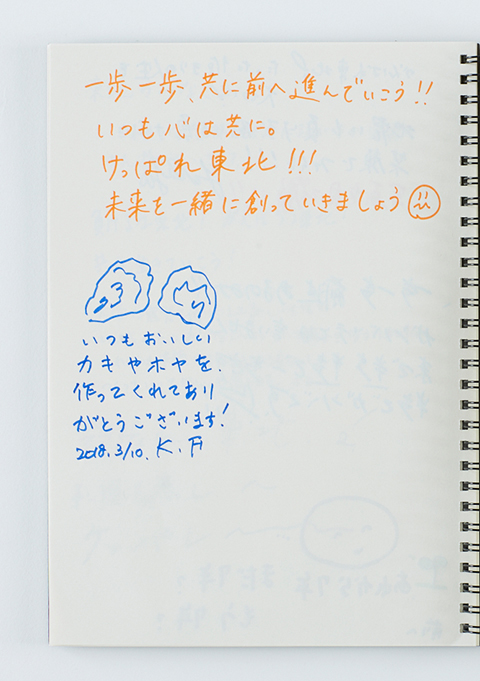 一歩一歩、共に前へ進んでいこう!!
いつも心は共に。
けっぱれ東北!!!
未来を一緒に創っていきましょう
いつもおいしい
カキやホヤを
作ってくれてあり
がとうございます!
2018.3/10. K.F